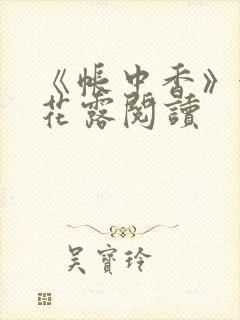 《帳中香》
花露閱讀
吳寶玲